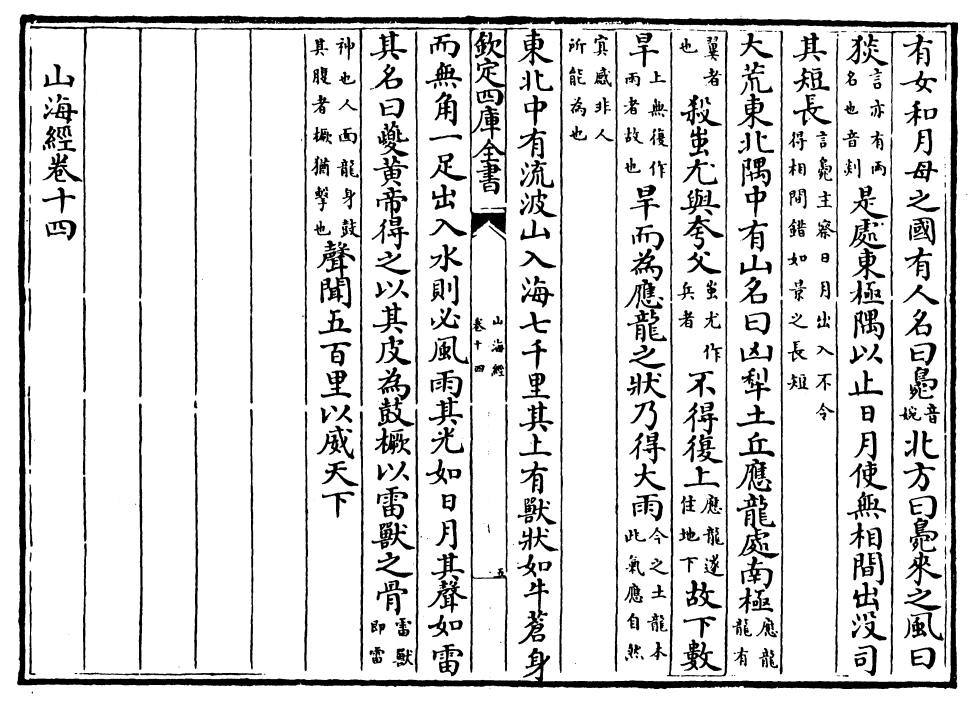 有女和月母之國有人名曰鳧音婉北方曰鳧來之風曰
狻言亦有兩名也音剡是處東極隅以止日月使無相間出沒司
其短長言鳧主察日月出入不令得相間錯如景之長短
大荒東北隅中有山名曰凶犁土丘應龍處南極應龍龍有
翼者也殺蚩尤與夸父蚩尤作兵者不得復上應龍遂住地下故下數
旱上無復作雨者故也旱而為應龍之狀乃得大雨今之土龍本此氣應自然
冥感非人所能為也
東北中有流波山入海七千里其上有獸狀如牛蒼身
欽定四庫全書
山海經
卷十四
五
而無角一足出入水則必風雨其光如日月其聲如雷
其名曰夔黃帝得之以其皮為鼓橛以雷獸之骨雷獸即雷
神也人面龍身鼓其腹者橛猶擊也聲聞五百里以威天下
山海經卷十四